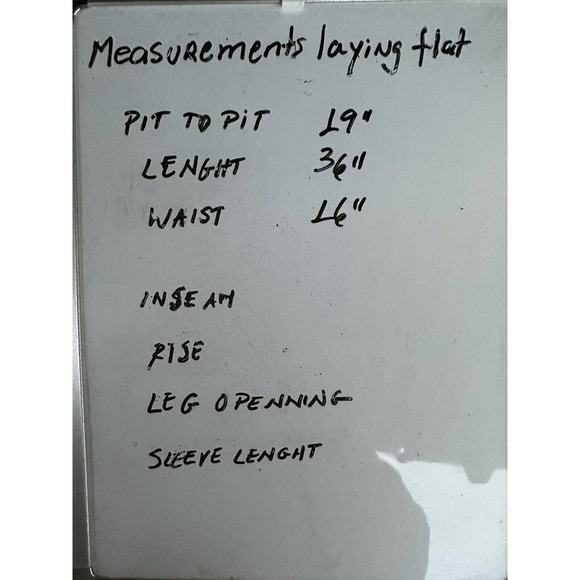 Measurements laying flat
PIT TO PIT 19"
LENGHT 36"
WAIST 16"
INSEAM
RISE
LEG OPENNING
SLEEVE LENGHT